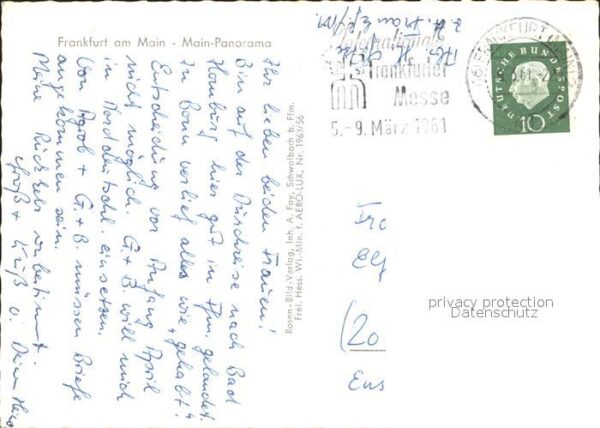 Frankfurt am Main - Main-Panorama
Ihr lieben beiden Frauen!
Bin auf der Durchreise nach Bad
Homburg hier gut in Ffm. gelandet.
In Bonn verlief alles wie "gehabt".
Entscheidung vor Anfang April
nicht möglich. G. + B. will mich
in Norddeutschl. einsetzen.
Von Agrob + G. + B. müssen Briefe
angekommen sein.
Meine Rückkehr unbestimmt.
Gruß + Kuß v. Deinem
Rosen-Bild-Verlag, Inh. A. Fay, Schwalbach b. Ffm.
Frei. Hess. Wi.-Min. f. AERO-LUX, Nr. 1963/56
Internationale
Frankfurter
Messe
5.-9. März 1961
FRANKFURT
DEUTSCHE BUNDESPOST
10
Fra
Elf
(20
Ems
privacy protection
Datenschutz